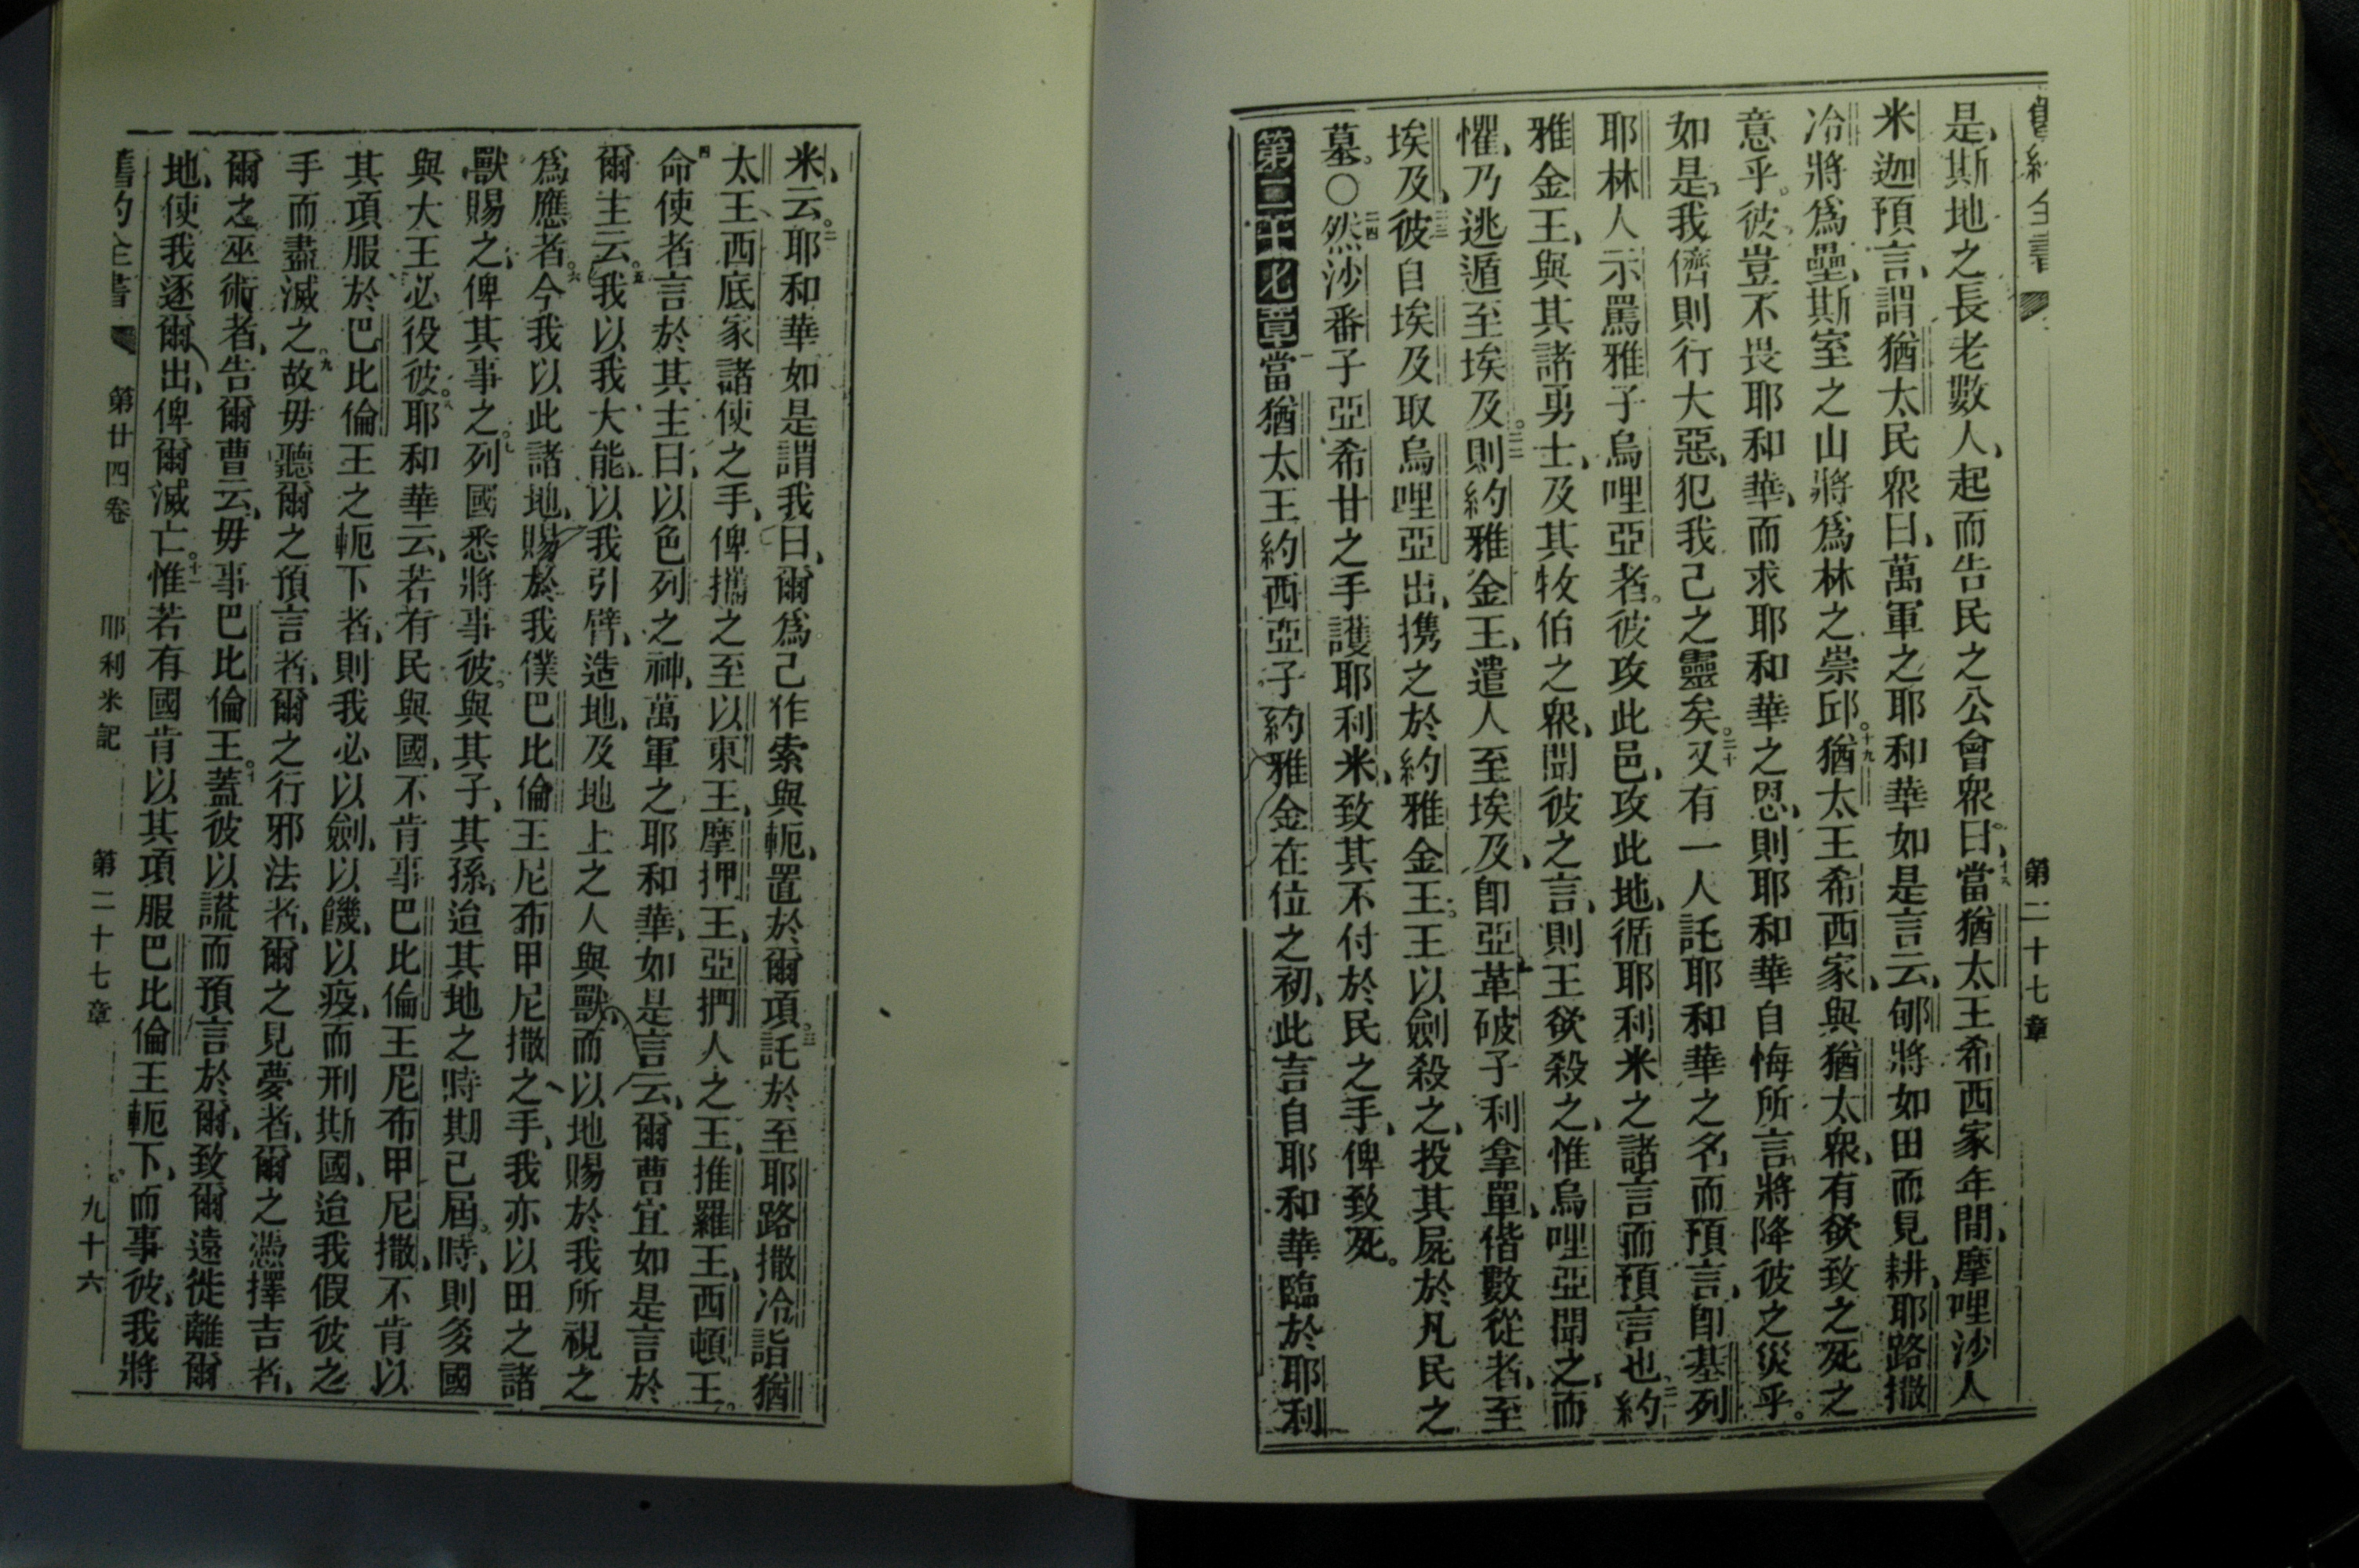 舊約全書 第二十七章
是、斯地之長老數人、起而告民之公會眾曰、十八當猶太王希西家年間、摩哩沙人
米迦預言、謂猶太民眾曰、萬軍之耶和華如是言云、郇將如田而見耕、耶路撒
冷將爲壘、斯室之山將爲林之崇邱。十九猶太王希西家、與猶太眾、有欲致之死之
意乎。彼豈不畏耶和華、而求耶和華之恩、則耶和華自悔所言將降彼之災乎。
如是、我儕則行大惡、犯我己之靈矣。二十又有一人託耶和華之名而預言、卽基列
耶林人示罵雅子烏哩亞者。彼攻此邑、攻此地、循耶利米之諸言而預言也。二一約
雅金王、與其諸勇士、及其牧伯之眾、聞彼之言、則王欲殺之、惟烏哩亞聞之、而
懼、乃逃遁至埃及。二二則約雅金王、遣人至埃及、卽亞革破子利拿單、偕數從者、至
埃及、二三彼自埃及取烏哩亞出、携之於約雅金王。王以劍殺之、投其屍於凡民之
墓。○二四然沙番子亞希甘之手護耶利米、致其不付於民之手、俾致死。
第二十七章一當猶太王約西亞子約雅金在位之初、此言自耶和華臨於耶利
米、云。二耶和華如是謂我曰、爾爲己作索與軛、置於爾項。三託於至耶路撒冷詣猶
太王西底家諸使之手、俾攜之至以東王、摩押王、亞捫人之王、推羅王、西頓王。
四命使者言於其主曰、以色列之神、萬軍之耶和華、如是言云、爾曹宜如是言於
爾主云。五我以我大能、以我引臂、造地、及地上之人與獸、而以地賜於我所視之
爲應者。六今我以此諸地、賜於我僕巴比倫王尼布甲尼撒之手、我亦以田之諸
獸賜之、俾其事之。七列國悉將事彼。與其子、其孫、迨其地之時期已屆。時、則多國
與大王必役彼。八耶和華云、若有民與國、不肯事巴比倫王尼布甲尼撒、不肯以
其項服於巴比倫王之軛下者、則我必以劍、以饑、以疫、而刑斯國、迨我假彼之
手而盡滅之。九故毋聽爾之預言者、爾之行邪法者、爾之見夢者、爾之憑擇吉者、
爾之巫術者、告爾曹云、毋事巴比倫王。十蓋彼以謊而預言於爾、致爾遠徙離爾
地、使我逐爾出、俾爾滅亡。十一惟若有國肯以其項服巴比倫王軛下、而事彼、我將
舊約全書 第廿四卷 耶利米記 第二十七章 九十六